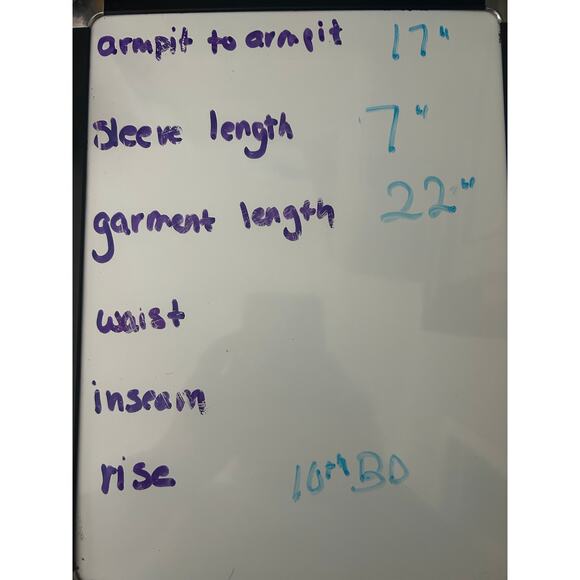 armpit to armpit 17"
sleeve length 7"
garment length 22"
waist
inseam
rise 10th BD